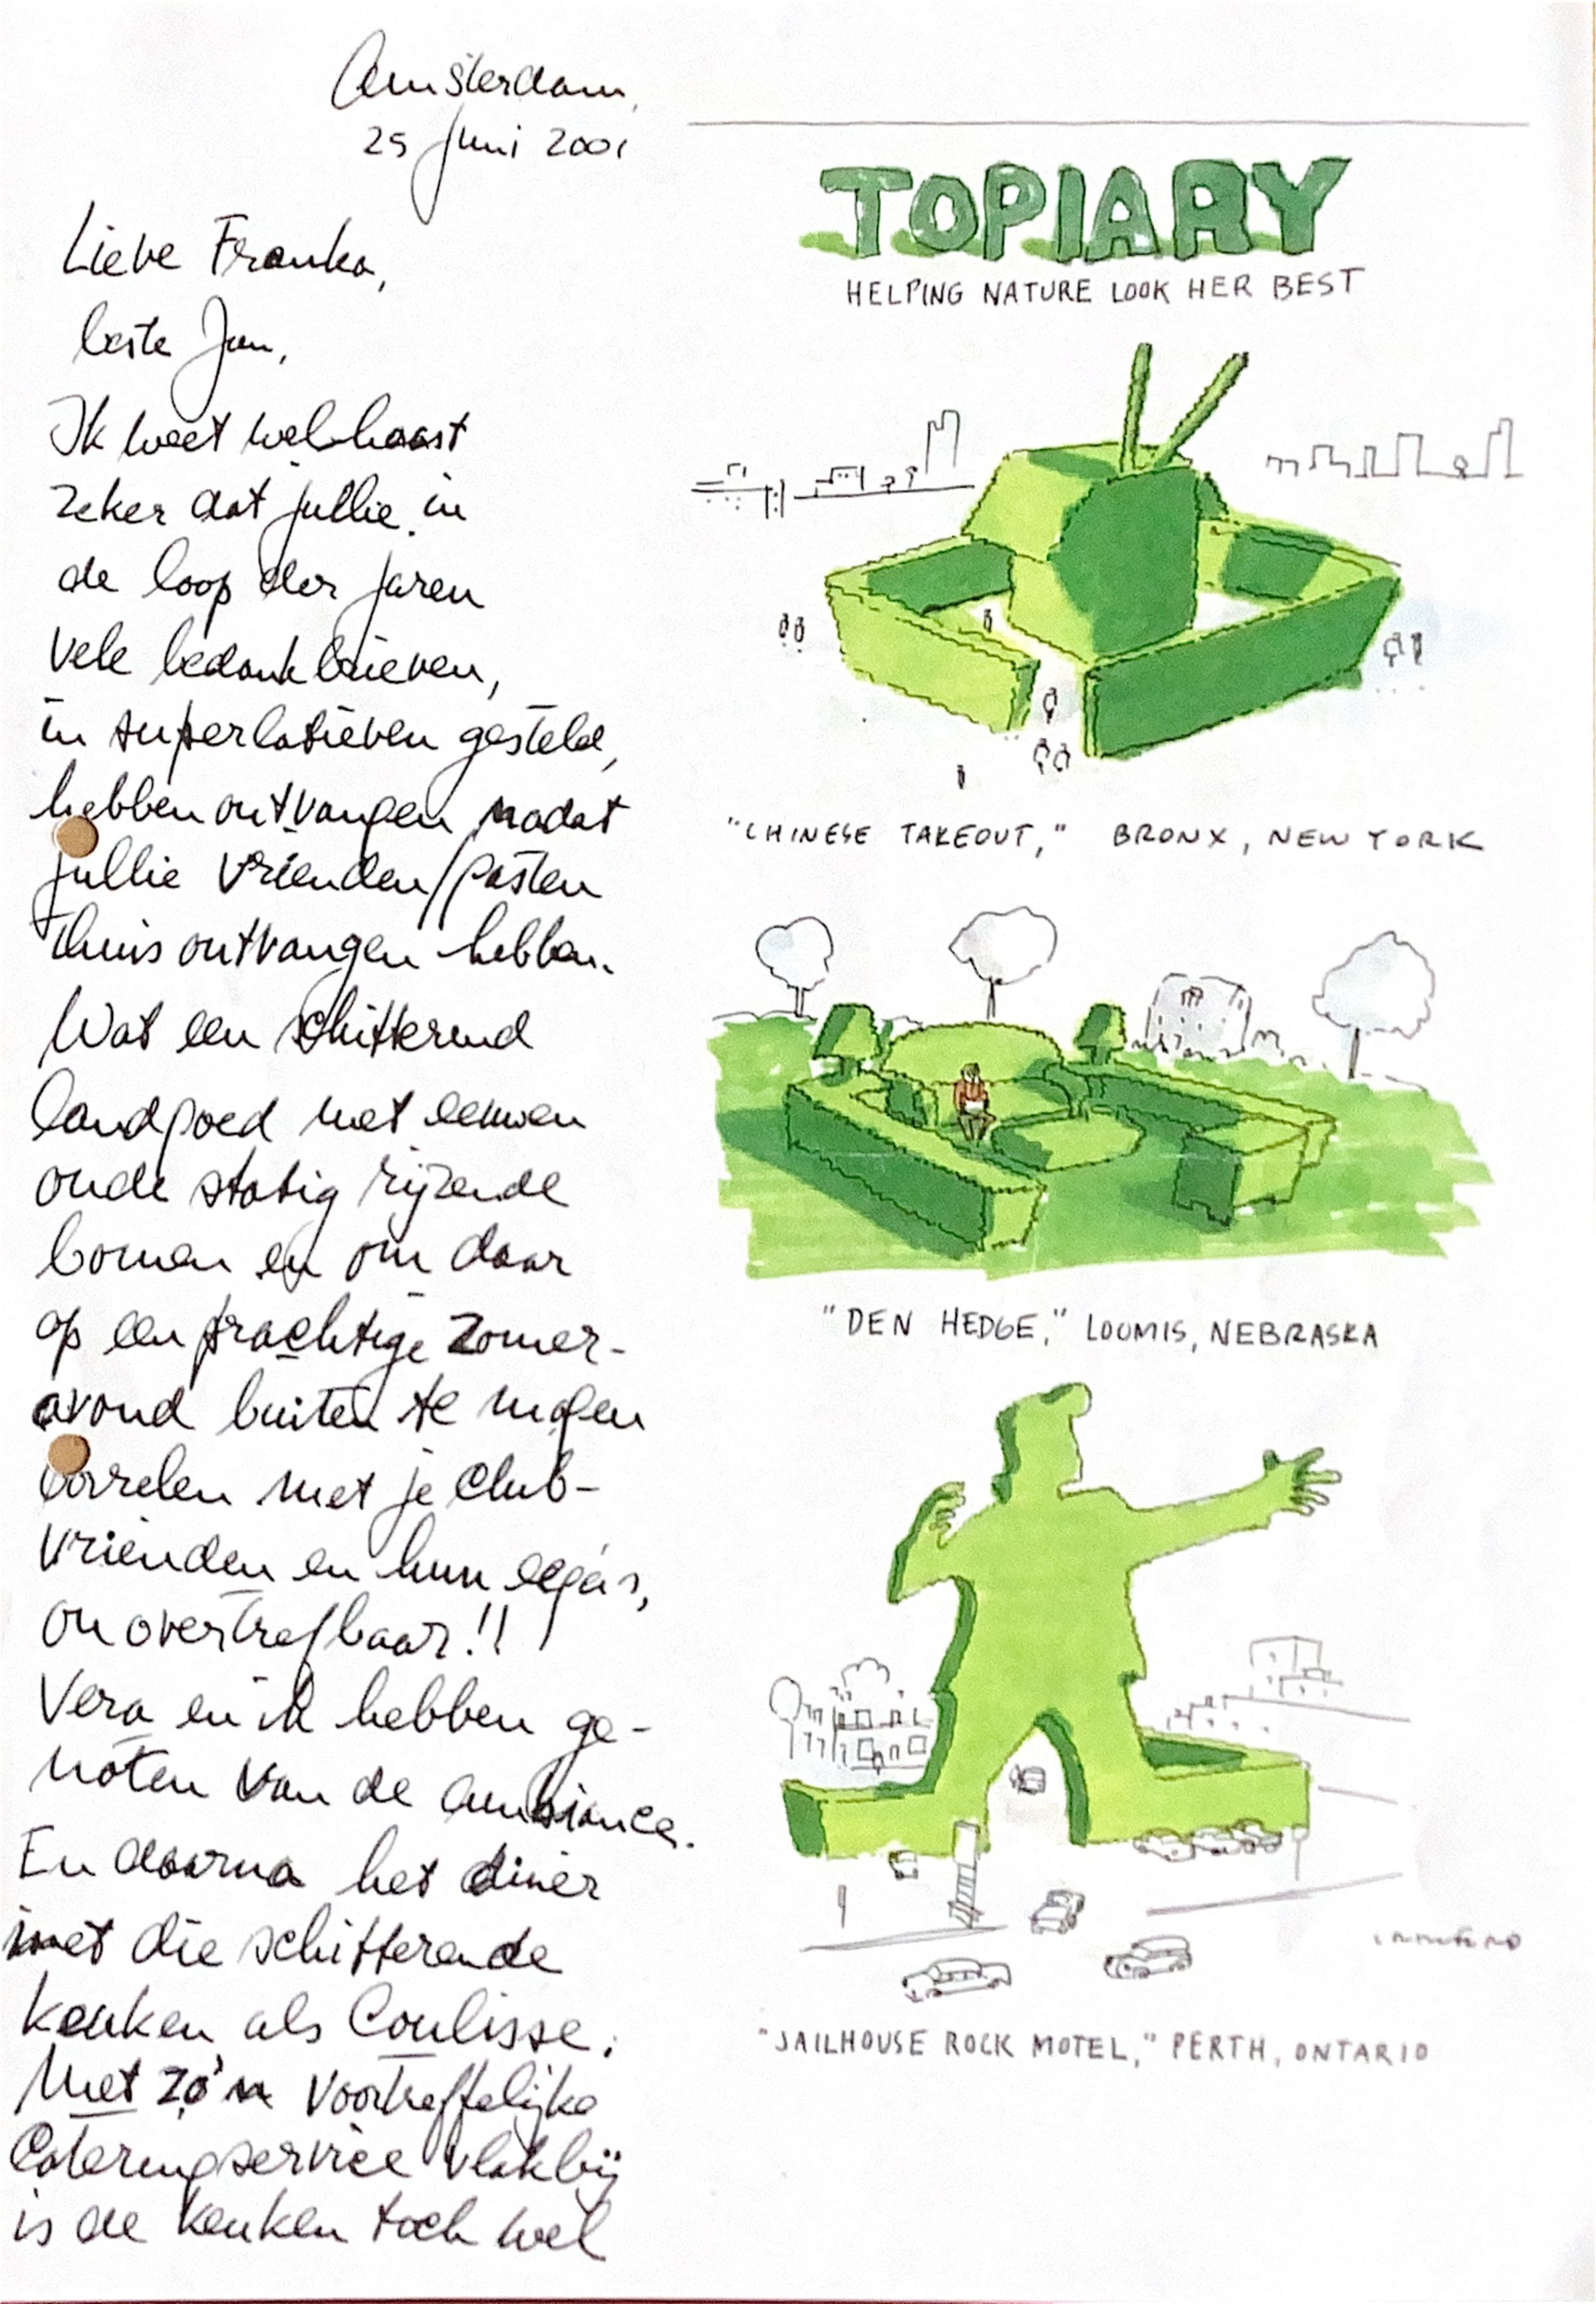 Amsterdam,
25 juni 2001
Lieve Franka,
beste Jan,
Ik weet wel haast
zeker dat jullie in
de loop der jaren
vele bedankbrieven,
in superlatieven gesteld,
hebben ontvangen nadat
jullie vrienden/gasten
thuis ontvangen hebben.
Wat een schitterend
landgoed met eeuwen
oude statig rijzende
bomen en om daar
op een prachtige zomer-
avond buiten te mogen
borrelen met je club-
vrienden en hun eega's,
onovertrefbaar!!
Vera en ik hebben ge-
noten van de ambiance.
En daarna het diner
met die schitterende
keuken als coulisse.
Met zo'n voortreffelijke
Cateringservice vlakbij
is de keuken toch wel
TOPIARY
HELPING NATURE LOOK HER BEST
"CHINESE TAKEOUT," BRONX, NEW YORK
"DEN HEDGE," LOOMIS, NEBRASKA
"JAILHOUSE ROCK MOTEL," PERTH, ONTARIO